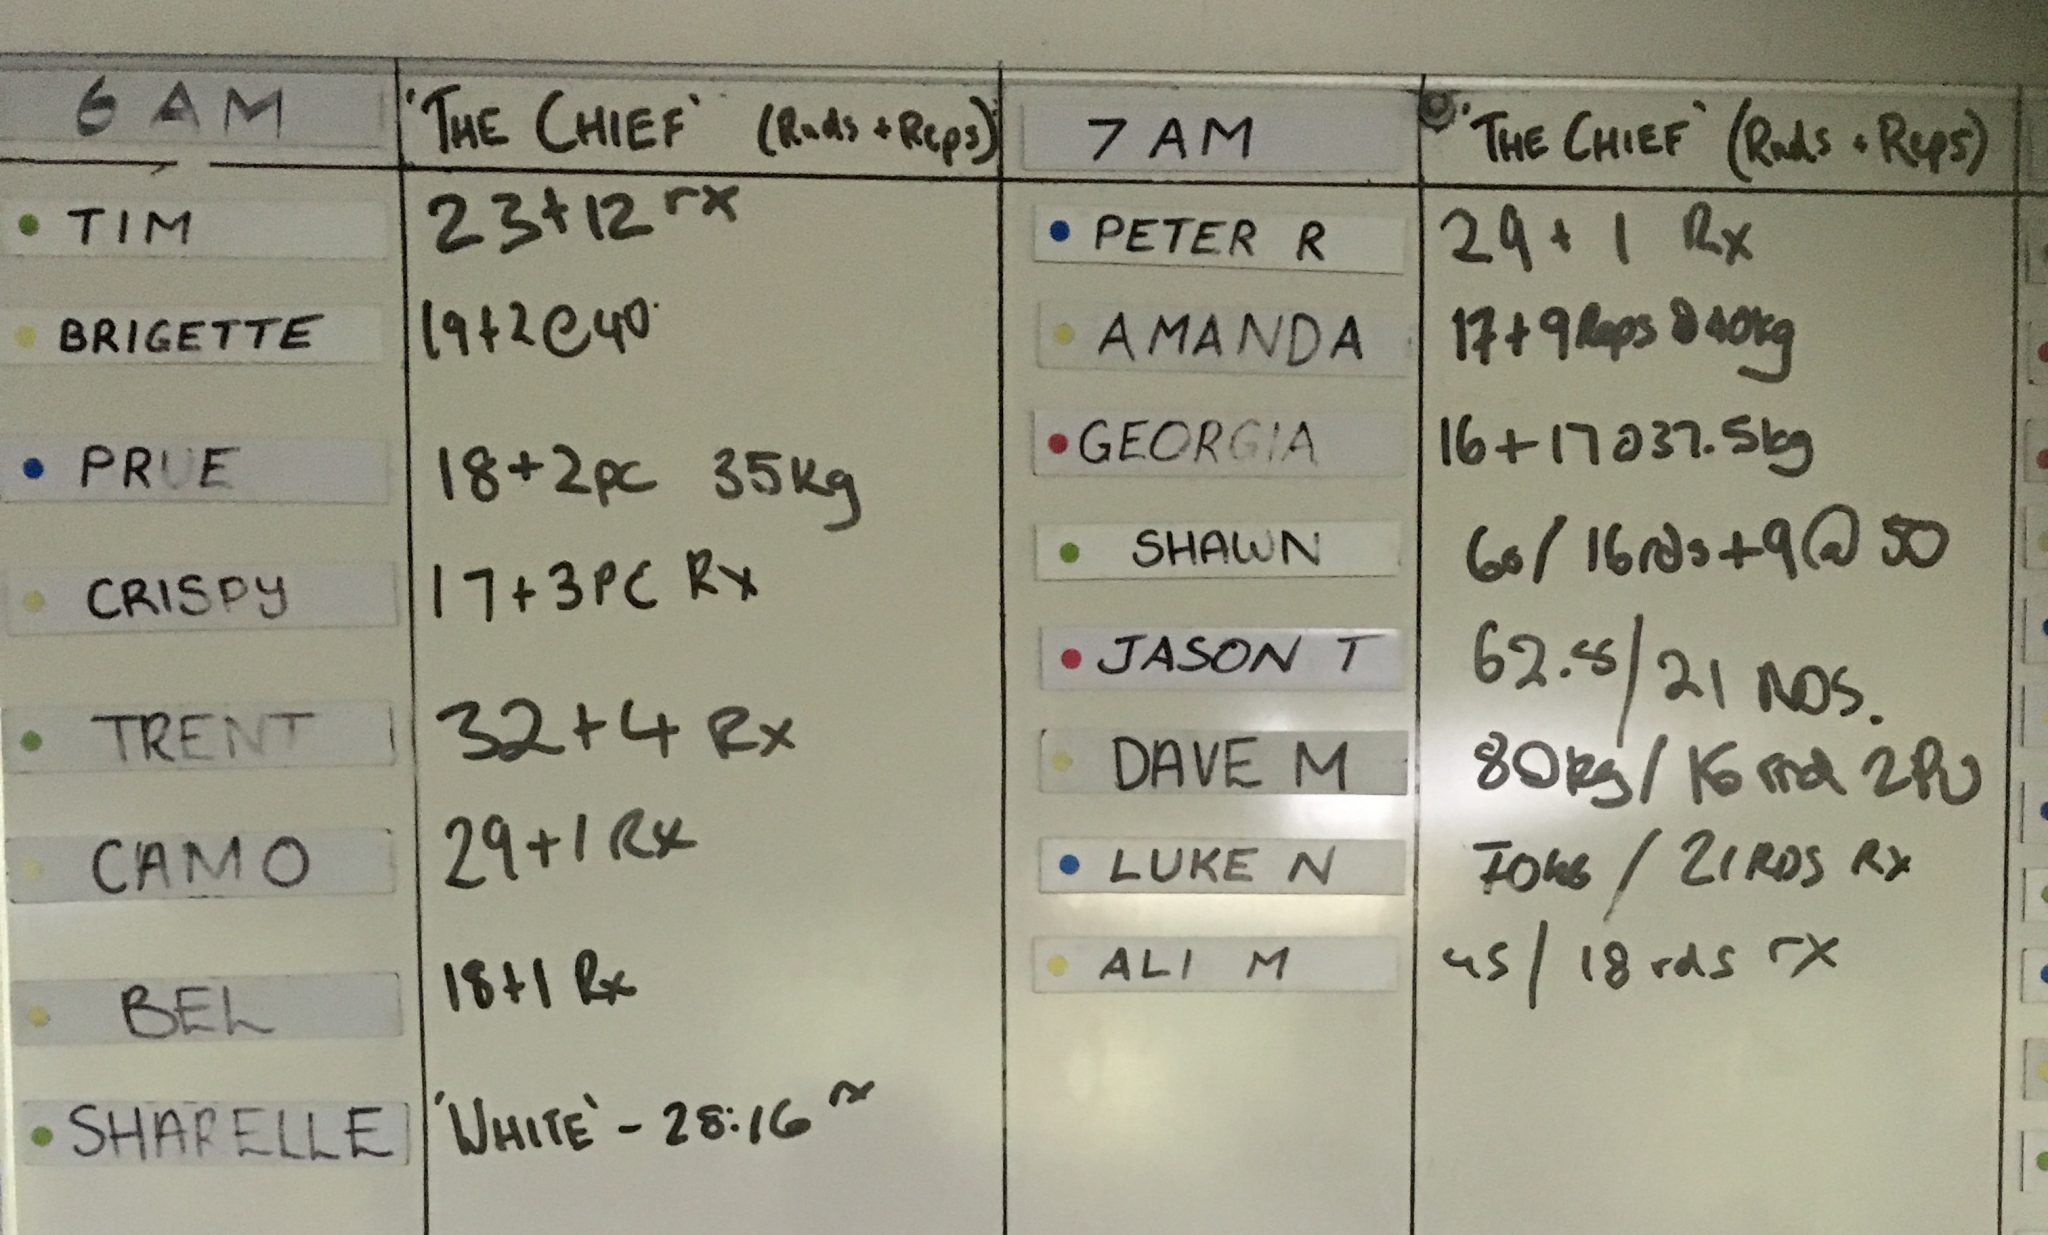 6 AM 'THE CHIEF' (Rnds + Reps) 7 AM 'THE CHIEF' (Rnds + Reps)
TIM 23+12 rx PETER R 29 + 1 Rx
BRIGETTE 19+2@40 AMANDA 17+9 Reps @ 40kg
PRUE 18+2pc 35kg GEORGIA 16+17@37.5kg
CRISPY 17+3PC Rx SHAWN 16rds+9@50
TRENT 32+4 Rx JASON T / 21 RDS.
CAMO 29+1 Rx DAVE M 80kg / 16 rnd 2PU
BEL 18+1 Rx LUKE N 70KG / 21 RDS Rx
SHARELLE 'WHITE' - 28:16 rx ALI M 45 / 18 rds rx